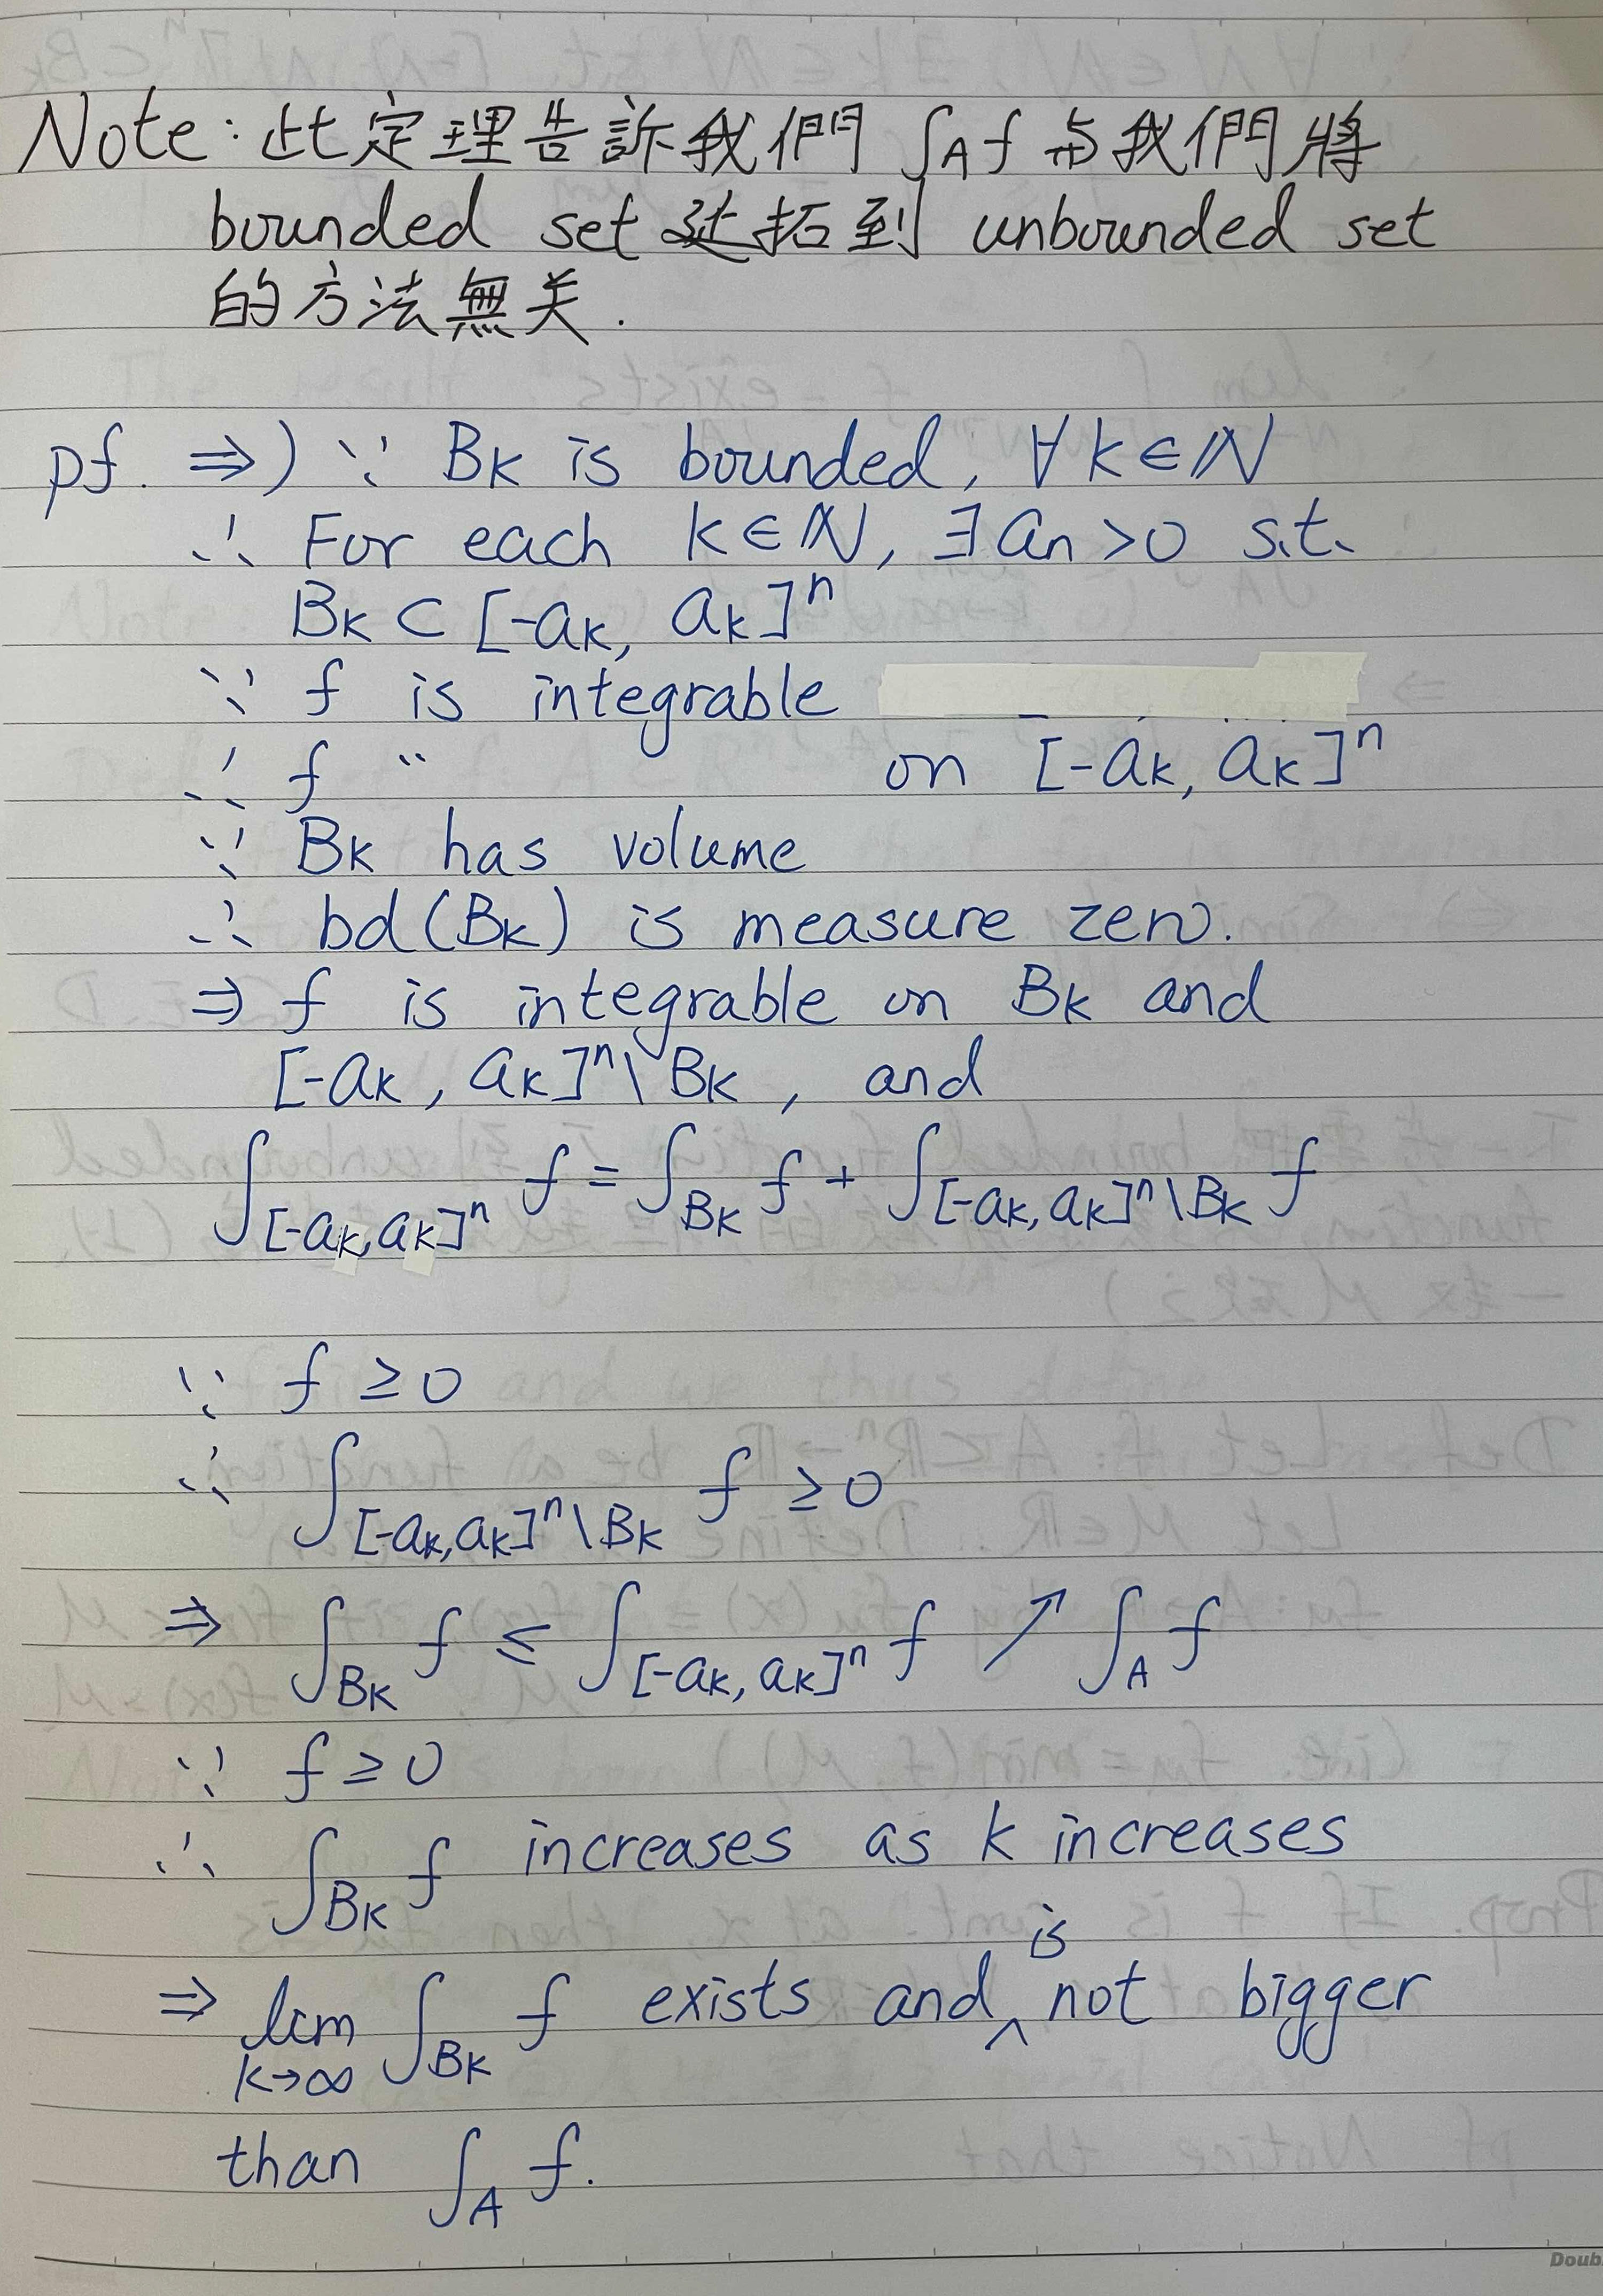 Note: 此定理告訴我們 ∫_A f 与我們將
bounded set 延拓到 unbounded set
的方法無关.
pf. ⇒) ∵ B_k is bounded, ∀ k ∈ ℕ
∴ For each k ∈ ℕ, ∃ a_n > 0 s.t.
B_k ⊂ [-a_k, a_k]^n
∵ f is integrable
∴ f 〃 on [-a_k, a_k]^n
∵ B_k has volume
∴ bd(B_k) is measure zero.
⇒ f is integrable on B_k and
[-a_k, a_k]^n \ B_k, and
∫_{[-a_k, a_k]^n} f = ∫_{B_k} f + ∫_{[-a_k, a_k]^n \ B_k} f
∵ f ≥ 0
∴ ∫_{[-a_k, a_k]^n \ B_k} f ≥ 0
⇒ ∫_{B_k} f ≤ ∫_{[-a_k, a_k]^n} f ↗ ∫_A f
∵ f ≥ 0
∴ ∫_{B_k} f increases as k increases
⇒ lim_{k→∞} ∫_{B_k} f exists and is not bigger
than ∫_A f.
Doub